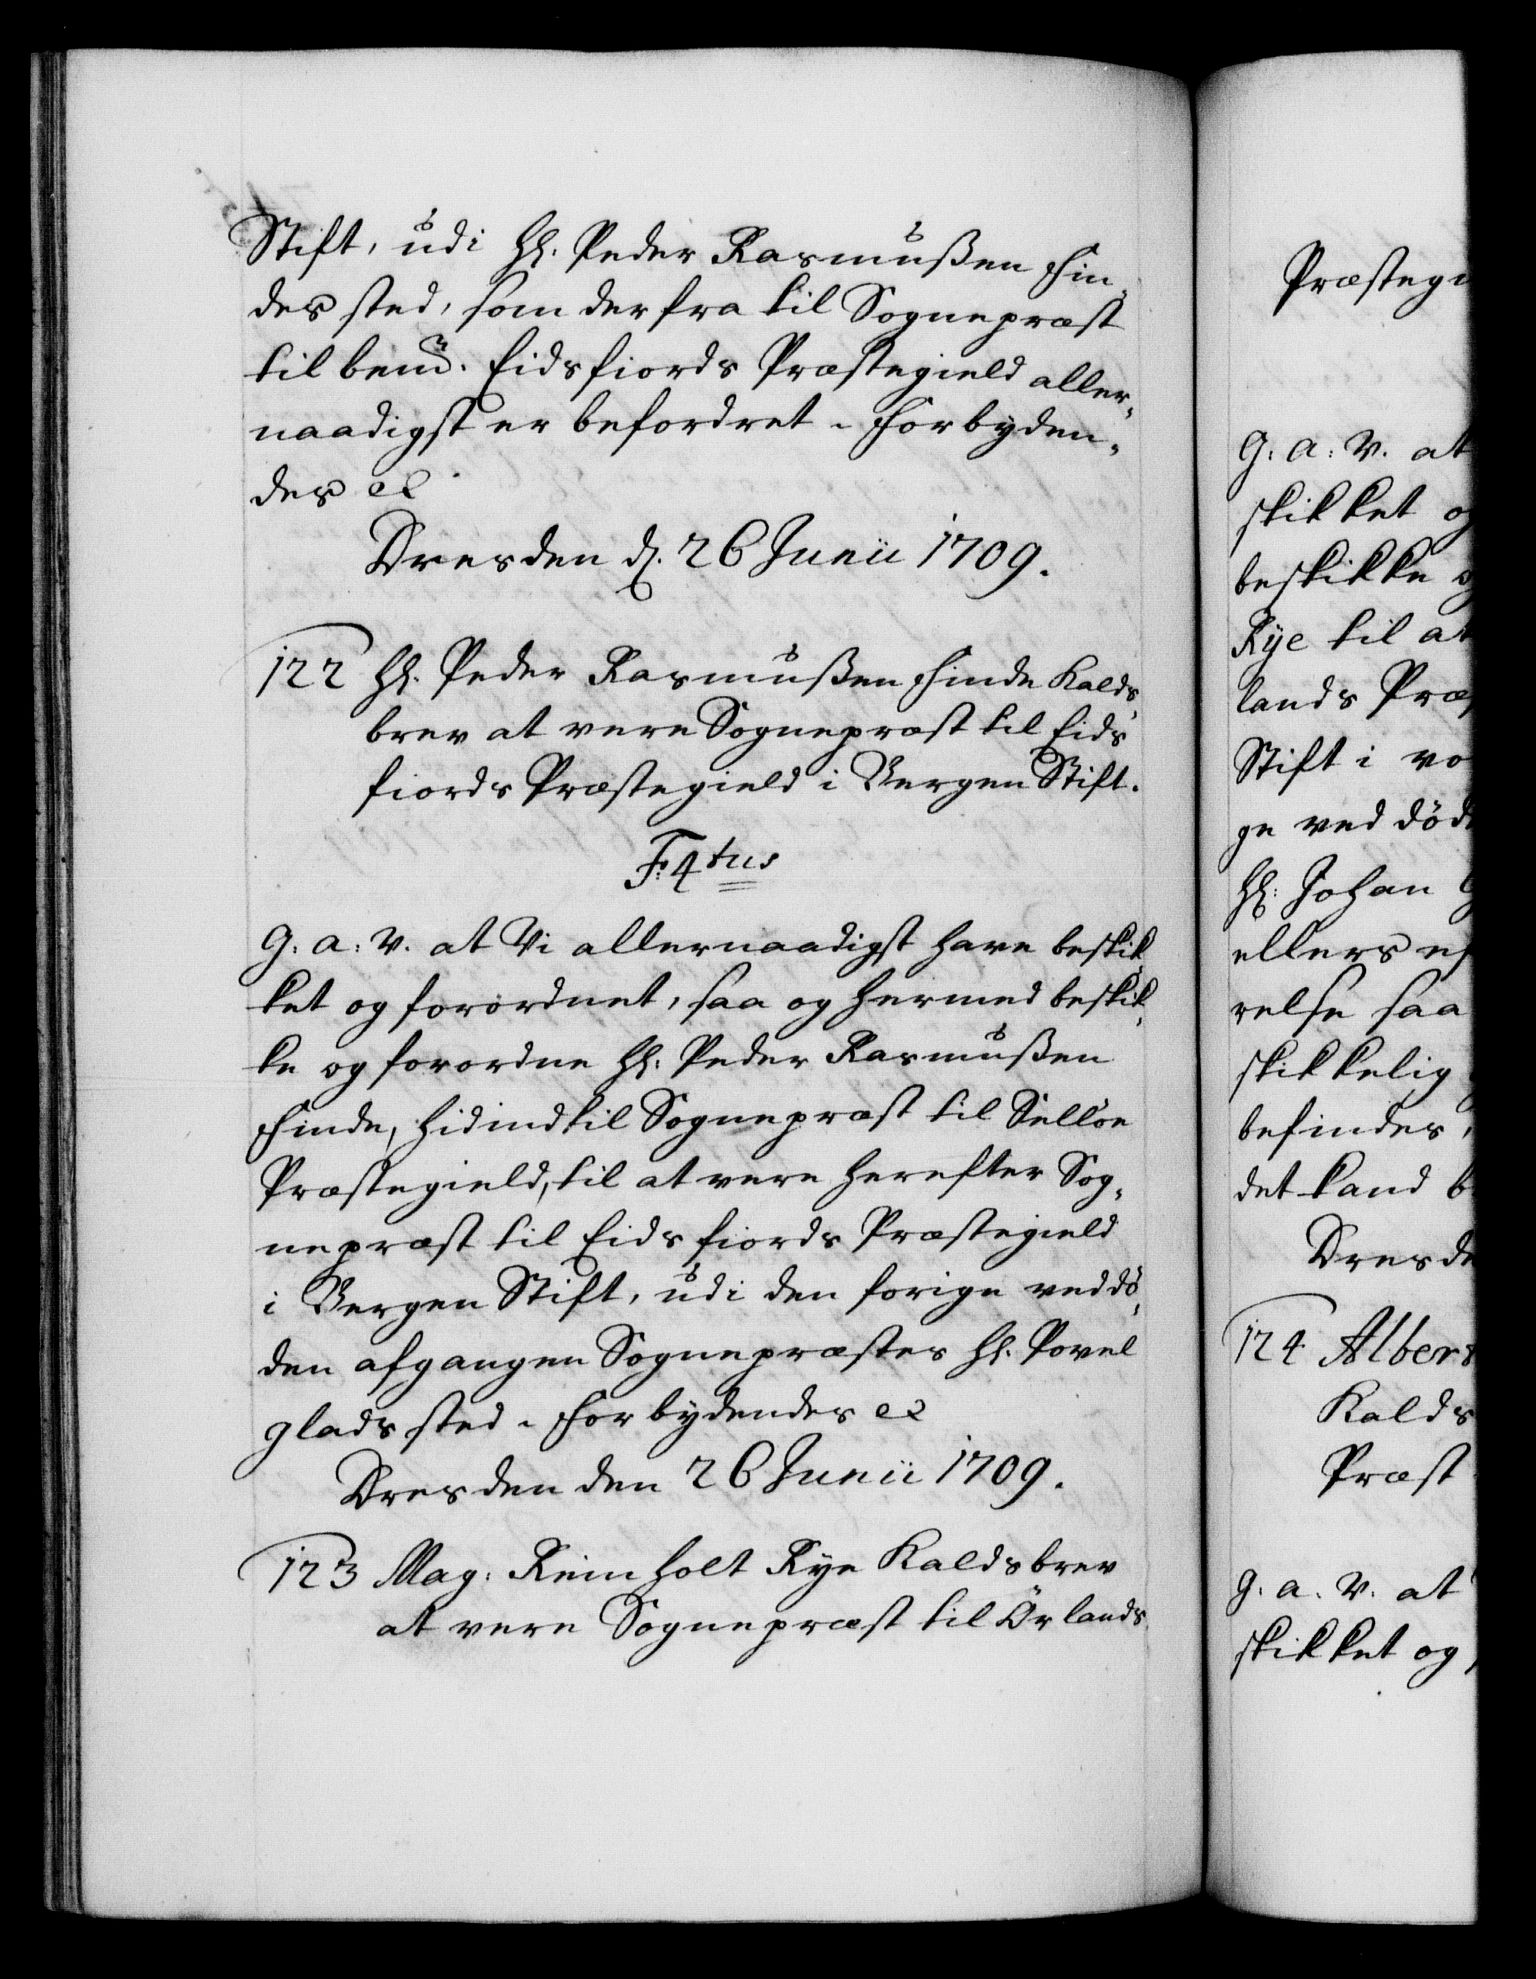 Stift, udi Hl. Peder Rasmusßen Fin-
des sted, som derfra til Sognepræst
til bemte. Eidsfiords Præstegield aller-
naadigst er befordret. Forbyden-
des ec
Dresden d. 26 Junii 1709.
122 Hl. Peder Rasmusßen Finde Kalds-
brev at vere Sognepræst til Eids
fiords Præstegield i Bergen Stift.
F. 4tus
G: a: V. at Vi allernaadigst have beskik-
ket og forordnet, saa og hermed beskik-
ke og forordne Hl. Peder Rasmusßen
Finde, hidindtil Sognepræst til Sellöe
Præstegield, til at vere herefter Sog-
nepræst til Eidsfiords Præstegield
i Bergen Stift, udi den forige ved dö-
den afgangen Sognepræstes Hl. Povel
glads sted. Forbydendes ec
Dresden den 26 Junii 1709.
123 Mag: Reinholt Rye Kaldsbrev
at vere Sognepræst til Örlands
Præstegi
G: a: V. at
skikket og
beskikke og
Rÿe til at
lands Præs
Stift i vo
ge ved död
Hl: Johan
ellers ef
relse saa
skikkelig
befindes,
det kand b
Dresde
124 Albers
Kalds
Præst
G. a. V. at
skikket og